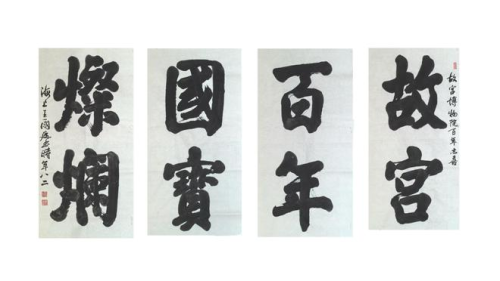 故宮博物院百年志喜
故宮
百年
國寶
燦爛
海上王國時年八二